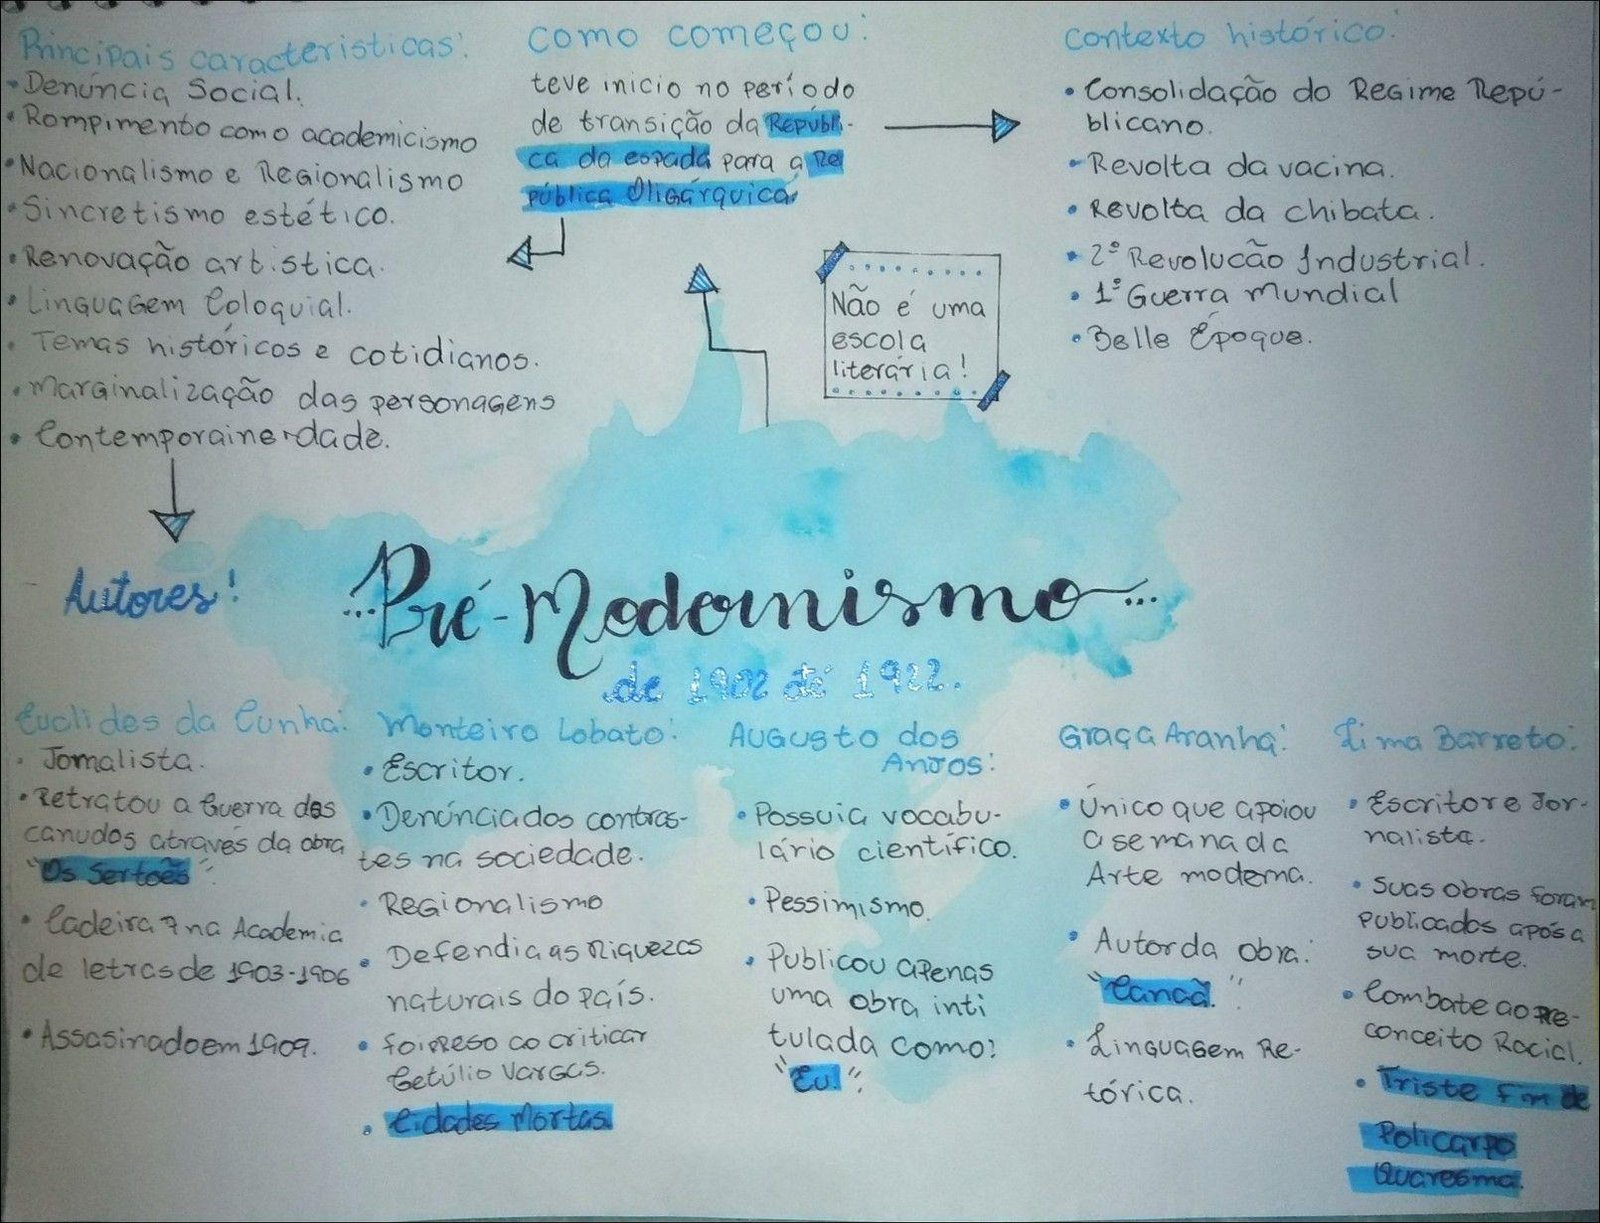 Principais características:
• Denúncia Social.
• Rompimento como academicismo
• Nacionalismo e Regionalismo
• Sincretismo estético.
• Renovação artistica.
• Linguagem Coloquial.
• Temas históricos e cotidianos.
• Marginalização das personagens
• Contemporaineidade.
Como começou:
teve inicio no período
de transição da Repúbli-
ca da espada para a Re
pública Oligárquica
Contexto histórico:
• Consolidação do Regime Repú-
blicano.
• Revolta da vacina.
• Revolta da chibata.
• 2º Revolucão Industrial.
• 1º Guerra Mundial
• Belle Époque.
Não é uma
escola
literária!
Autores!
...Pré-Modernismo...
de 1902 até 1922.
Euclides da Cunha:
• Jornalista.
• Retratou a Guerra dos
canudos através da obra
"Os Sertões".
• Cadeira 7 na Academia
de letras de 1903-1906
• Assasinado em 1909.
Monteiro Lobato:
• Escritor.
• Denúncia dos contras-
tes na sociedade.
• Regionalismo
• Defendia as riquezas
naturais do país.
• foi preso ao criticar
Getúlio Vargas.
• Cidades Mortas.
Augusto dos
Anjos:
• Possuia vocabu-
lário científico.
• Pessimismo.
• Publicou apenas
uma obra inti
tulada como:
"Eu!".
Graça Aranha:
• Único que apoiou
a semana da
Arte moderna.
• Autor da obra:
"Canaã."
• Linguagem Re-
tórica.
Lima Barreto:
• Escritor e Jor-
nalista.
• Suas obras foram
publicadas após a
sua morte.
• Combate ao pre-
conceito Racial.
• Triste Fim de
Policarpo
Quaresma.